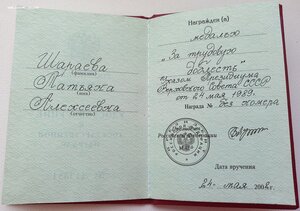 Шараева
(фамилия)
Татьяна
(имя)
Алексеевна
(отчество)
Награжден (а)
медалью
"За трудовую
доблесть"
Указом Президиума
Верховного Совета СССР
от 24 мая 1989.
Награда № без номера
Российской Федерации
М.П.
Дата вручения
24 мая 2002 г.